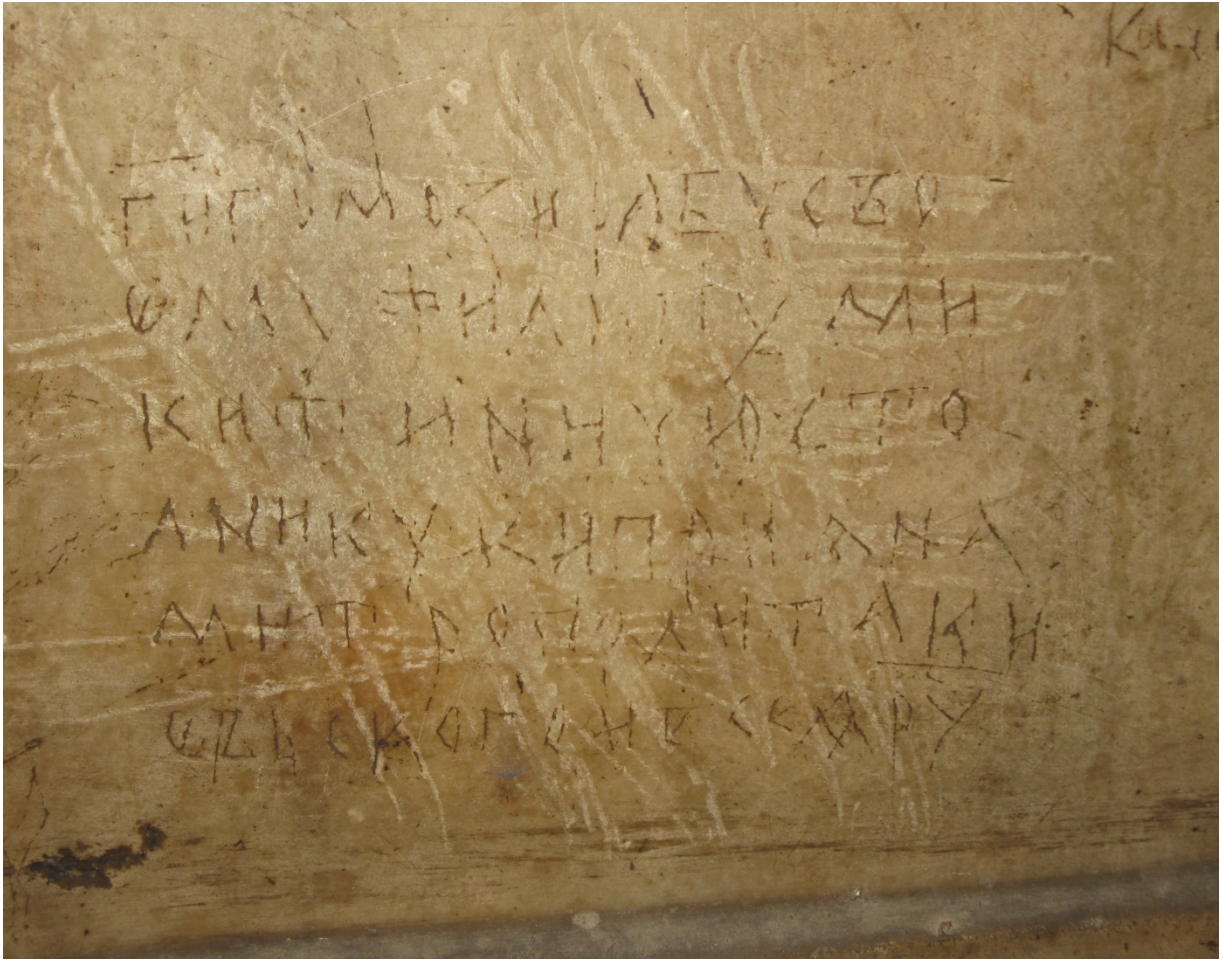 Г҃И ПОМОЗИ РАБУ СВО
ФИЛИПУ МИ
КИТИНИЧЮ СТО
ЛНИКУ КИПРИАНА
МИТРОПОЛИТА КИ
ЕВЬСКОГО И ВСЕѦ РУ